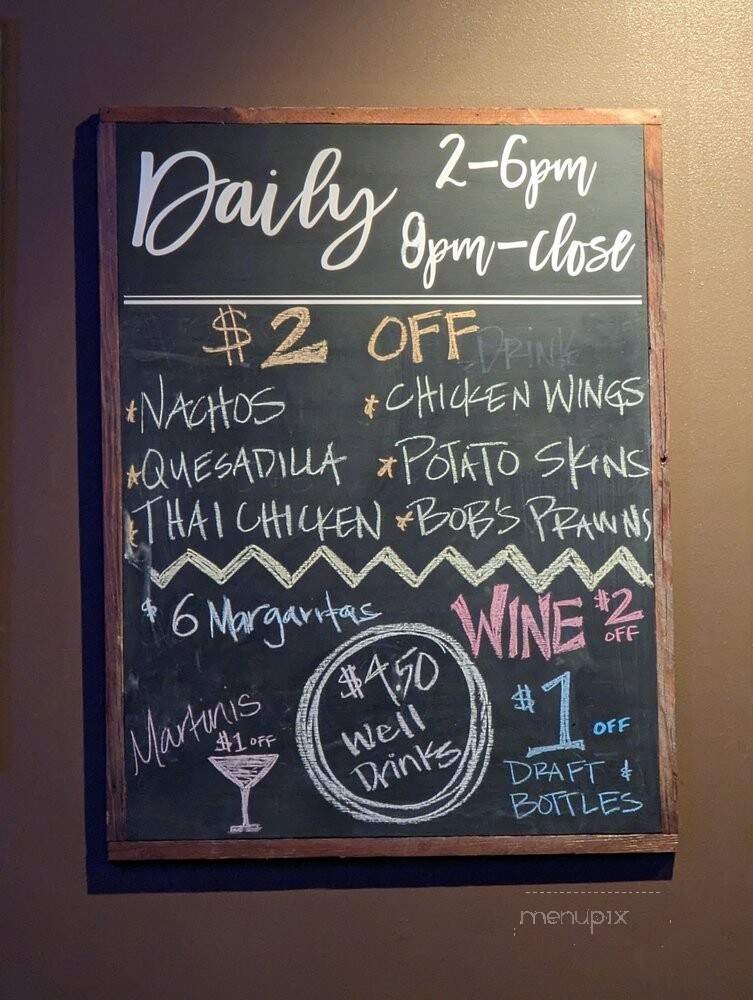 Daily 2-6pm
9pm-close
$2 OFF
DRINK
*NACHOS *CHICKEN WINGS
*QUESADILLA *POTATO SKINS
*THAI CHICKEN *BOB'S PRAWNS
$6 Margaritas WINE $2
OFF
$4.50
Well
Drinks
Martinis
$1 OFF
$1 OFF
DRAFT &
BOTTLES
menupix